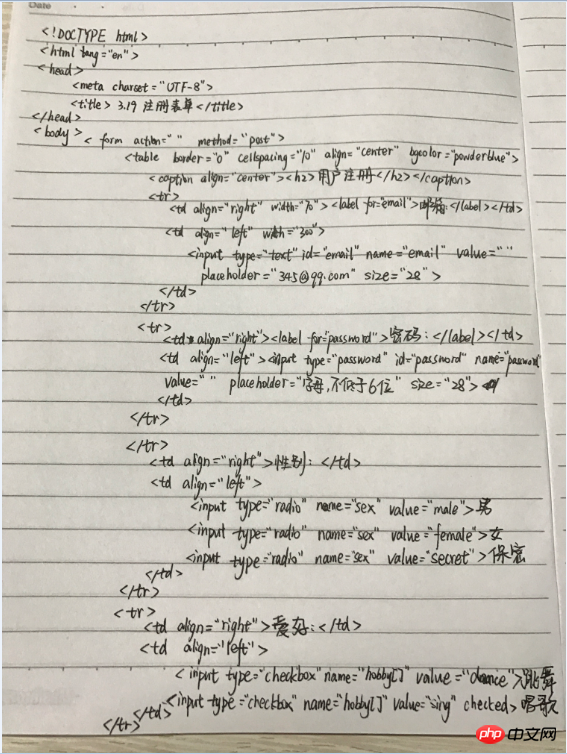 Date
<!DOCTYPE html>
<html lang="en">
<head>
<meta charset="UTF-8">
<title> 3.19 注册表单</title>
</head>
<body> < form action=" " method="post">
<table border="0" cellspacing="10" align="center" bgcolor="powderblue">
<caption align="center"><h2>用户注册</h2></caption>
<tr>
<td align="right" width="70"><label for="email">邮箱:</label></td>
<td align="left" width="300">
<input type="text" id="email" name="email" value=" "
placeholder="345@qq.com" size="28">
</td>
</tr>
<tr>
<td align="right"><label for="password">密码:</label></td>
<td align="left"><input type="password" id="password" name="password
value=" " placeholder="字母,不低于6位" size="28">
</td>
</tr>
</tr>
<td align="right">性别:</td>
<td align="left">
<input type="radio" name="sex" value="male">男
<input type="radio" name="sex" value="female">女
<input type="radio" name="sex" value="secret">保密
</td>
</tr>
<tr>
<td align="right">爱好:</td>
<td align="left">
<input type="checkbox" name="hobby[]" value="dance">跳舞
<input type="checkbox" name="hobby[]" value="sing" checked>唱歌
</td>
</tr>
php中文网